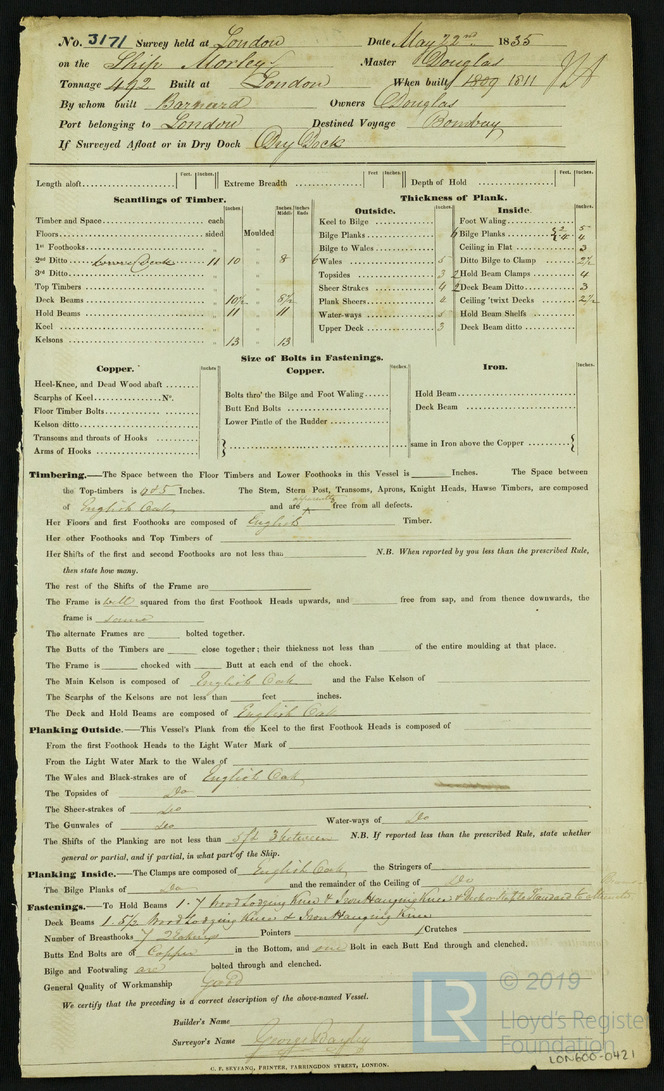 No. 3171 Survey held at London Date May 22nd 1835
on the Ship Morley Master Douglas
Tonnage 492 Built at London When built 1809 1811
By whom built Barnard Owners Douglas
Port belonging to London Destined Voyage Bombay
If Surveyed Afloat or in Dry Dock Dry Dock
Length aloft Feet. Inches. Extreme Breadth Feet Inches. Depth of Hold Feet. Inches.
Scantlings of Timber.
Inches. Inches Middle Inches Ends
Timber and Space each
Floors sided Moulded
1st Foothooks „
2nd Ditto 11 10 „ 8 6
3rd Ditto „
Top Timbers „
Deck Beams „ 10½ „ 8½
Hold Beams „ 11 „ 11
Keel „
Kelsons „ 13 13
Thickness of Plank.
Outside. Inches.
Keel to Bilge
Bilge Planks
Bilge to Wales
Wales 5
Topsides 3
Sheer Strakes 4
Plank Sheers 4
Water-ways 5
Upper Deck 3
Inside. Inches.
Foot Waling
6 Bilge Planks 2 5 4 4
Ceiling in Flat 3
Ditto Bilge to Clamp 2½
2 Hold Beam Clamps 4
2 Deck Beam Ditto 3
Ceiling 'twixt Decks 2½
Hold Beam Shelfs
Deck Beam ditto
Size of Bolts in Fastenings.
Copper. Inches
Heel-Knee, and Dead Wood abaft
Scarphs of Keel No.
Floor Timber Bolts
Kelson ditto
Transoms and throats of Hooks
Arms of Hooks
Copper. Inches.
Bolts thro' the Bilge and Foot Waling
Butt End Bolts
Lower Pintle of the Rudder
Iron. Inches.
Hold Beam
Deck Beam
same in Iron above the Copper
Timbering.—The Space between the Floor Timbers and Lower Foothooks in this Vessel is Inches. The Space between
the Top-timbers is 4 @ 5 Inches. The Stem, Stern Post, Transoms, Aprons, Knight Heads, Hawse Timbers, are composed
of English Oak and are apparently free from all defects.
Her Floors and first Foothooks are composed of English Timber.
Her other Foothooks and Top Timbers of
Her Shifts of the first and second Foothooks are not less than N.B. When reported by you less than the prescribed Rule,
then state how many.
The rest of the Shifts of the Frame are
The Frame is well squared from the first Foothook Heads upwards, and free from sap, and from thence downwards, the
frame is same
The alternate Frames are bolted together.
The Butts of the Timbers are close together; their thickness not less than of the entire moulding at that place.
The Frame is chocked with Butt at each end of the chock.
The Main Kelson is composed of English Oak and the False Kelson of
The Scarphs of the Kelsons are not less than feet inches.
The Deck and Hold Beams are composed of English Oak
Planking Outside.—This Vessel's Plank from the Keel to the first Foothook Heads is composed of
From the first Foothook Heads to the Light Water Mark of
From the Light Water Mark to the Wales of
The Wales and Black-strakes are of English Oak
The Topsides of Do
The Sheer-strakes of Do
The Gunwales of Do Water-ways of Do
The Shifts of the Planking are not less than 5ft 3 between N.B. If reported less than the prescribed Rule, state whether
general or partial, and if partial, in what part of the Ship.
Planking Inside.—The Clamps are composed of English Oak the Stringers of
The Bilge Planks of Do and the remainder of the Ceiling of Do
Fastenings.—To Hold Beams 1.7 Wood Lodging Knee & Iron Hanging Knee &
Deck Beams 1.5½ Wood Lodging Knee & Iron Hanging Knee
Number of Breasthooks 7 Pointers Crutches
Butts End Bolts are of Copper in the Bottom, and one Bolt in each Butt End through and clenched.
Bilge and Footwaling are bolted through and clenched.
General Quality of Workmanship Good
We certify that the preceding is a correct description of the above-named Vessel.
Builder's Name
Surveyor's Name George Bayley
C. F. SEYFANG, PRINTER, FARRINGDON STREET, LONDON.
LR © 2019
Lloyd's Register
Foundation
LON600-0421